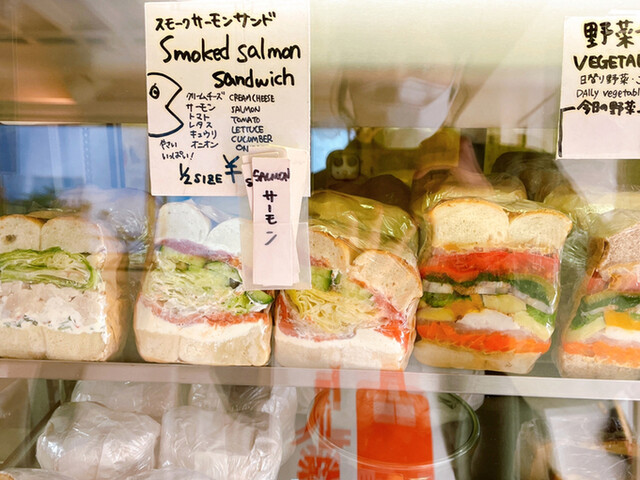 スモークサーモンサンド
Smoked salmon
sandwich
クリームチーズ CREAMCHEESE
サーモン SALMON
トマト TOMATO
レタス LETTUCE
キュウリ CUCUMBER
オニオン ON
やさい
いっぱい!
1/2 SIZE ¥
SALMON
サーモン
野菜
VEGETAB
日替り野菜
Daily vegetabl
今日の野菜